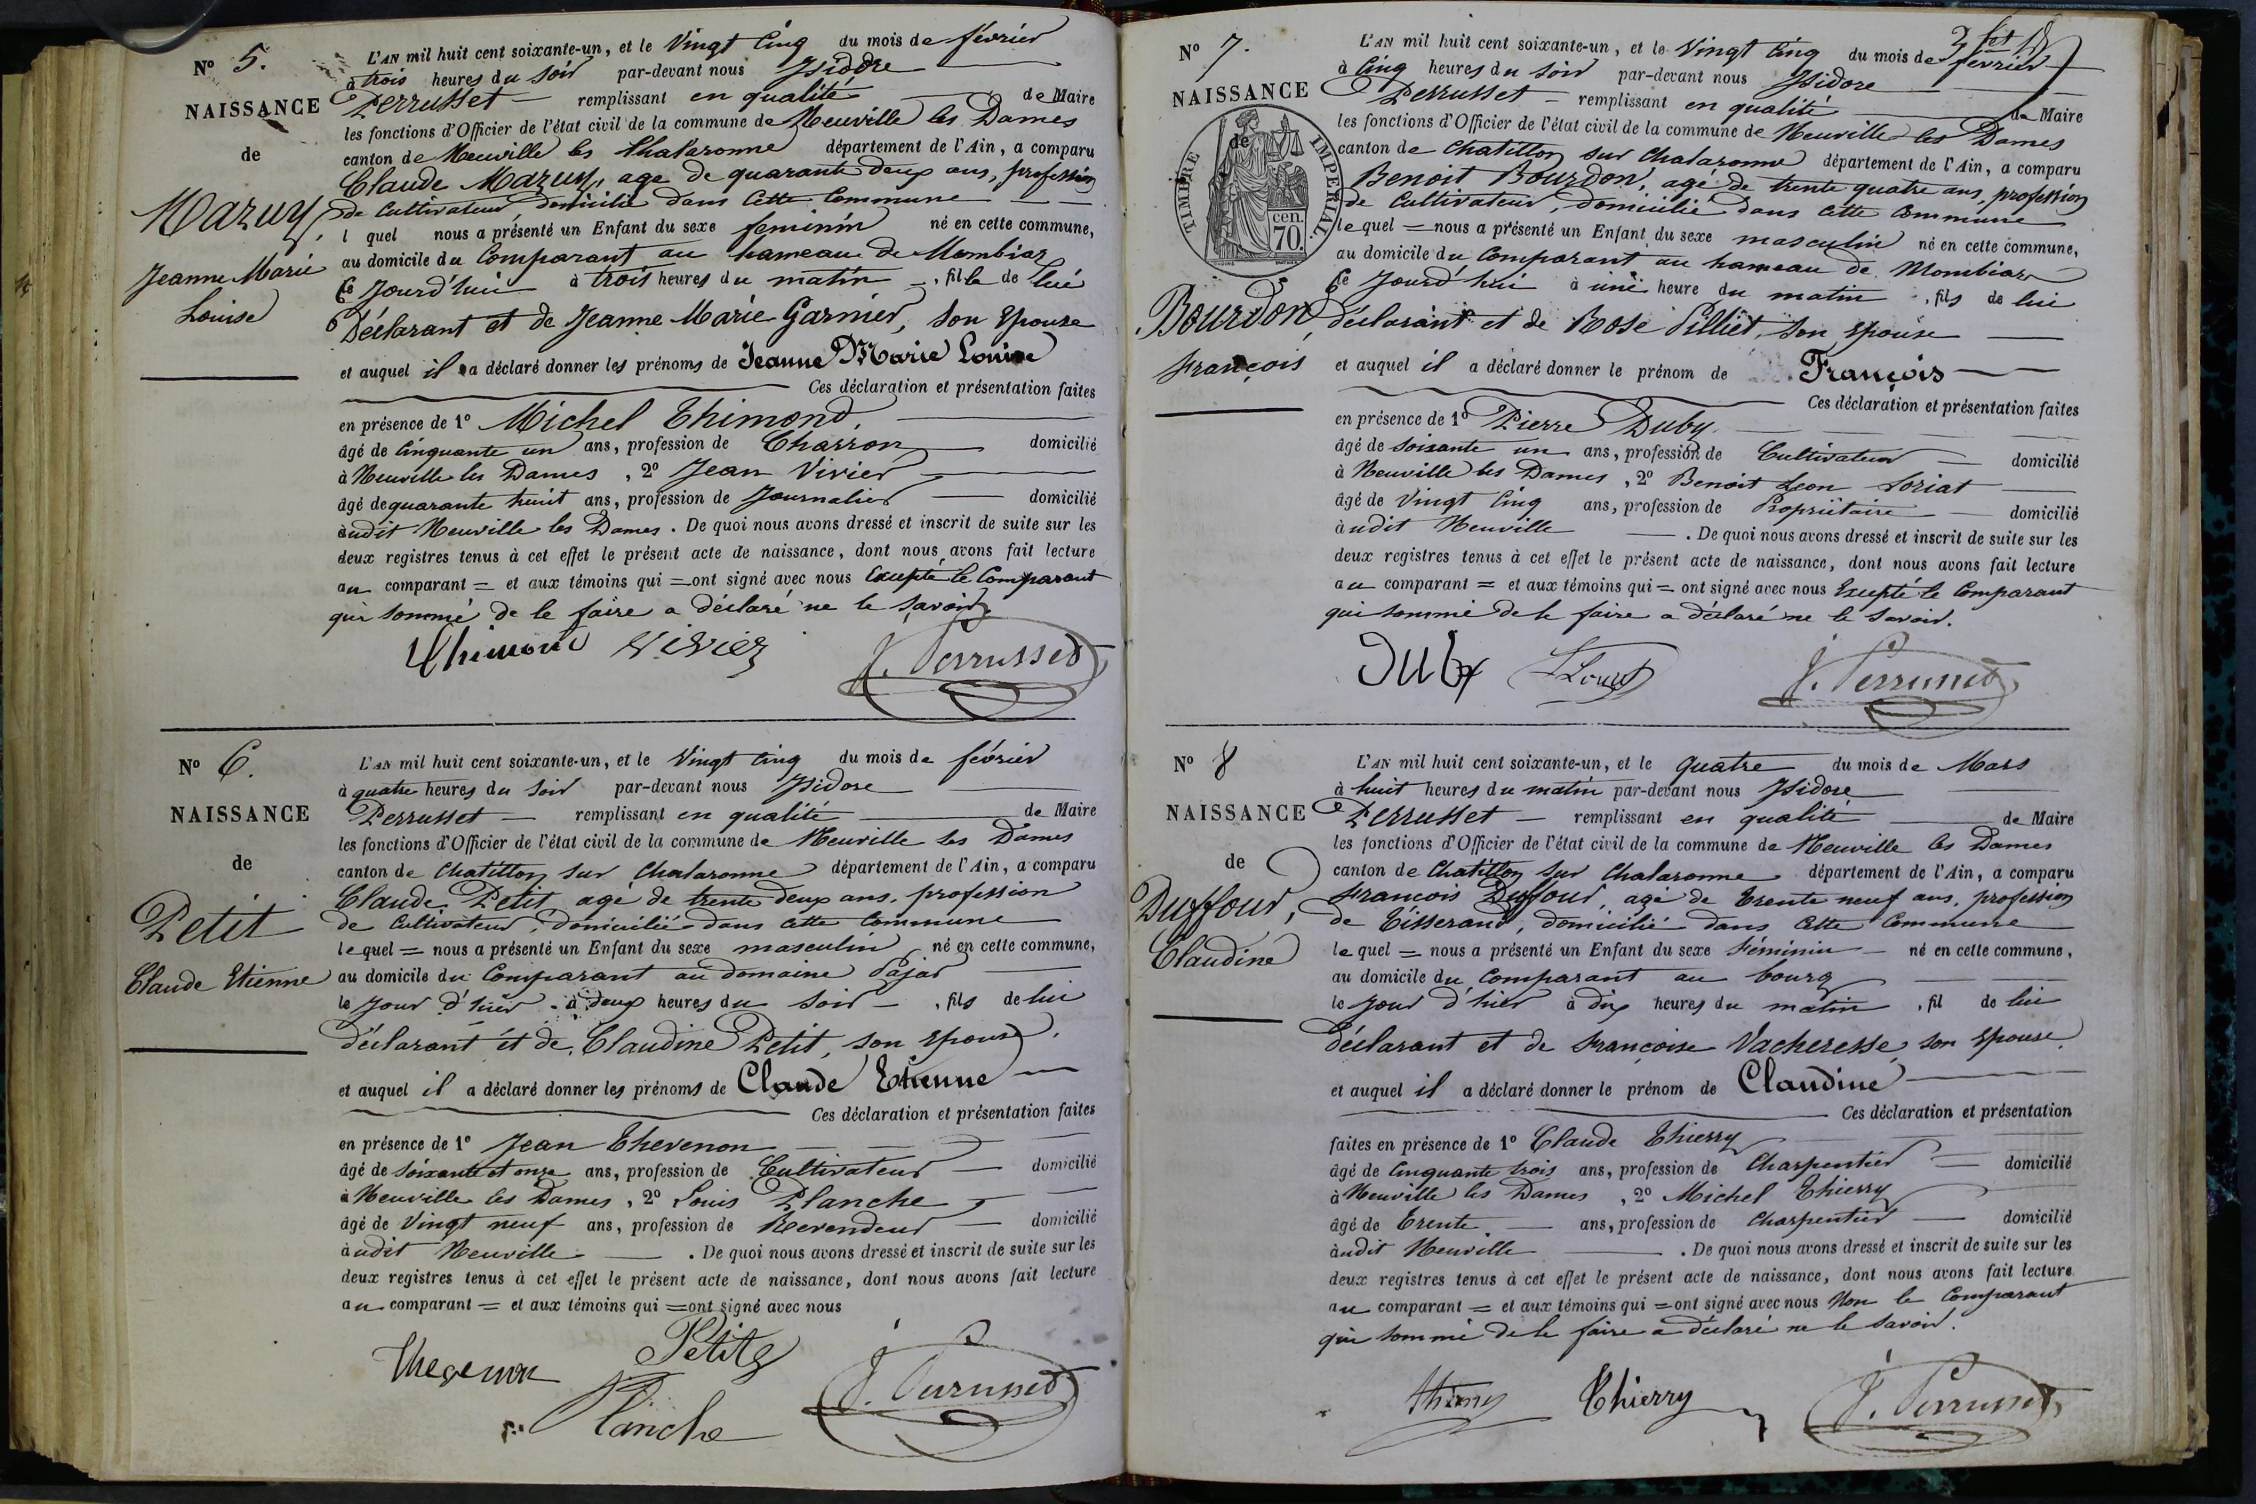 N° 5.
NAISSANCE
de
Mazuy,
Jeanne Marie
Louise
L'AN mil huit cent soixante-un, et le Vingt Cinq du mois de février
à trois heures du soir par-devant nous Isidore
Perrusset remplissant en qualité de Maire
les fonctions d'Officier de l'état civil de la commune de Neuville les Dames
canton de Neuville les Chalaronne département de l'Ain, a comparu
Claude Mazuy, agé de quarante deux ans, profession
de Cultivateur, domicilié dans Cette Commune
l quel nous a présenté un Enfant du sexe feminin né en cette commune,
au domicile du Comparant au hameau de Mombiar
Ce Jourd'hui à trois heures du matin, fille de lui
Déclarant et de Jeanne Marie Garnier, son Epouse
et auquel il a déclaré donner les prénoms de Jeanne Marie Louise
Ces déclaration et présentation faites
en présence de 1° Michel Thimond,
âgé de Cinquante un ans, profession de Charron domicilié
à Neuville les Dames, 2° Jean Vivier
âgé de quarante huit ans, profession de Journalier domicilié
àudit Neuville les Dames. De quoi nous avons dressé et inscrit de suite sur les
deux registres tenus à cet effet le présent acte de naissance, dont nous avons fait lecture
au comparant = et aux témoins qui = ont signé avec nous Excepté le Comparant
qui sommé de le faire a déclaré ne le savoir.
Thimond Vivier J. Perrusset
N° 6.
NAISSANCE
de
Petit
Claude Etienne
L'AN mil huit cent soixante-un, et le Vingt Cinq du mois de février
à quatre heures du soir par-devant nous Isidore
Perrusset remplissant en qualité de Maire
les fonctions d'Officier de l'état civil de la commune de Neuville les Dames
canton de Chatillon sur Chalaronne département de l'Ain, a comparu
Claude Petit agé de trente deux ans, profession
de Cultivateur, domicilié dans cette Commune
lequel = nous a présenté un Enfant du sexe masculin né en cette commune,
au domicile du Comparant au domaine Pajar
le Jour d'hier à deux heures du soir, fils de lui
déclarant et de Claudine Petit, son Epouse.
et auquel il a déclaré donner les prénoms de Claude Etienne
Ces déclaration et présentation faites
en présence de 1° Jean Thevenon
âgé de soixante et onze ans, profession de Cultivateur domicilié
à Neuville les Dames, 2° Louis Planche
âgé de Vingt neuf ans, profession de Revendeur domicilié
àudit Neuville. De quoi nous avons dressé et inscrit de suite sur les
deux registres tenus à cet effet le présent acte de naissance, dont nous avons fait lecture
au comparant = et aux témoins qui = ont signé avec nous
Thevenon Petit
Planche J. Perrusset
N° 7.
NAISSANCE
de
TIMBRE IMPÉRIAL
70 cen.
Bourdon,
François
L'AN mil huit cent soixante-un, et le Vingt Cinq du mois de février
à Cinq heures du soir par-devant nous Isidore
Perrusset remplissant en qualité de Maire
les fonctions d'Officier de l'état civil de la commune de Neuville les Dames
canton de Chatillon sur Chalaronne département de l'Ain, a comparu
Benoit Bourdon, agé de trente quatre ans, profession
de Cultivateur, domicilié dans Cette Commune
lequel = nous a présenté un Enfant du sexe masculin né en cette commune,
au domicile du Comparant au hameau de Mombiar
Ce Jourd'hui à une heure du matin, fils de lui
déclarant et de Rose Pilliet, son Epouse
et auquel il a déclaré donner le prénom de François
Ces déclaration et présentation faites
en présence de 1° Pierre Duby
âgé de soixante un ans, profession de Cultivateur domicilié
à Neuville les Dames, 2° Benoit Léon Loriat
âgé de Vingt Cinq ans, profession de Propriétaire domicilié
àudit Neuville. De quoi nous avons dressé et inscrit de suite sur les
deux registres tenus à cet effet le présent acte de naissance, dont nous avons fait lecture
au comparant = et aux témoins qui = ont signé avec nous Excepté le Comparant
qui sommé de le faire a déclaré ne le savoir.
Duby J. Perrusset
N° 8
NAISSANCE
de
Duffour,
Claudine
L'AN mil huit cent soixante-un, et le quatre du mois de Mars
à huit heures du matin par-devant nous Isidore
Perrusset remplissant en qualité de Maire
les fonctions d'Officier de l'état civil de la commune de Neuville les Dames
canton de Chatillon sur Chalaronne département de l'Ain, a comparu
François Duffour, agé de trente neuf ans, profession
de Tisserand, domicilié dans Cette Commune
lequel = nous a présenté un Enfant du sexe féminin né en cette commune,
au domicile du Comparant au bourg
le Jour d'hier à dix heures du matin, fil de lui
déclarant et de Françoise Vacheresse, son Epouse.
et auquel il a déclaré donner le prénom de Claudine
Ces déclaration et présentation
faites en présence de 1° Claude Thierry
âgé de Cinquante trois ans, profession de Charpentier domicilié
à Neuville les Dames, 2° Michel Thierry
âgé de Trente ans, profession de Charpentier domicilié
àudit Neuville. De quoi nous avons dressé et inscrit de suite sur les
deux registres tenus à cet effet le présent acte de naissance, dont nous avons fait lecture
au comparant = et aux témoins qui = ont signé avec nous Non le Comparant
qui sommé de le faire a déclaré ne le savoir.
Thierry Thierry J. Perrusset